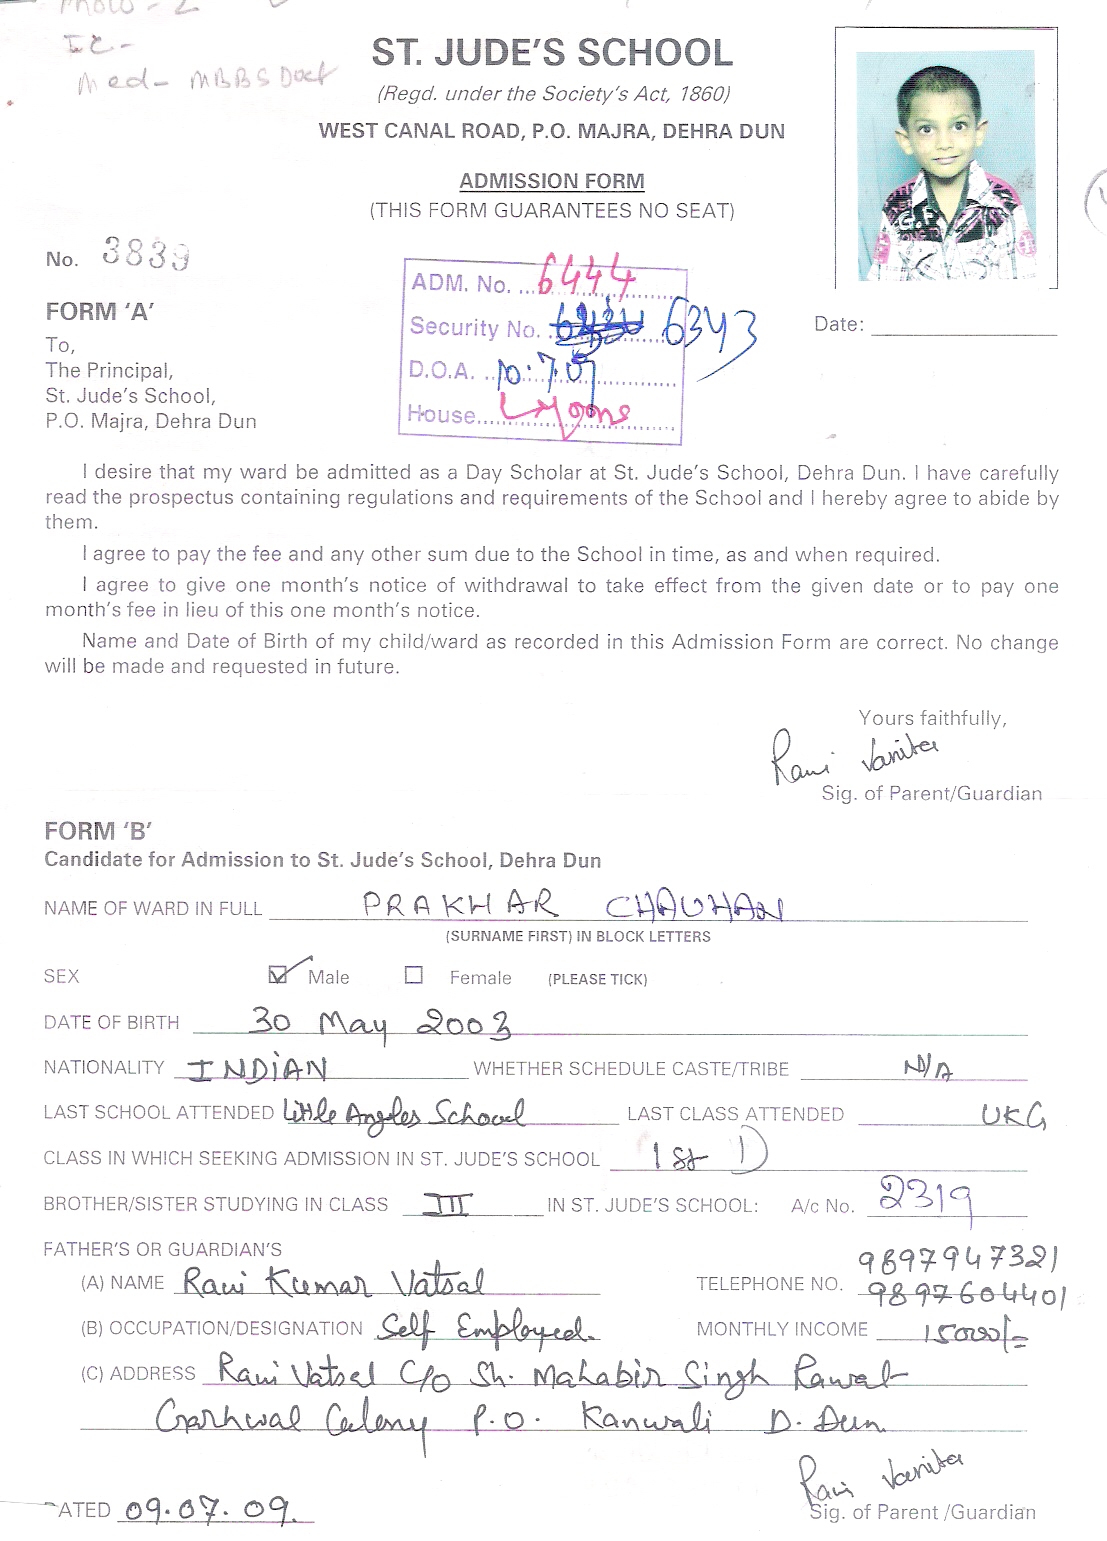 IC-
Med- MBBS Doct
ST. JUDE'S SCHOOL
(Regd. under the Society's Act, 1860)
WEST CANAL ROAD, P.O. MAJRA, DEHRA DUN
ADMISSION FORM
(THIS FORM GUARANTEES NO SEAT)
No. 3839
ADM. No. 6444
Security No. 6343
D.O.A. 10.7.09
House Lyons
Date:
FORM 'A'
To,
The Principal,
St. Jude's School,
P.O. Majra, Dehra Dun
I desire that my ward be admitted as a Day Scholar at St. Jude's School, Dehra Dun. I have carefully
read the prospectus containing regulations and requirements of the School and I hereby agree to abide by
them.
I agree to pay the fee and any other sum due to the School in time, as and when required.
I agree to give one month's notice of withdrawal to take effect from the given date or to pay one
month's fee in lieu of this one month's notice.
Name and Date of Birth of my child/ward as recorded in this Admission Form are correct. No change
will be made and requested in future.
Yours faithfully,
Ravi Vanita
Sig. of Parent/Guardian
FORM 'B'
Candidate for Admission to St. Jude's School, Dehra Dun
NAME OF WARD IN FULL PRAKHAR CHAUHAN
(SURNAME FIRST) IN BLOCK LETTERS
SEX Male Female (PLEASE TICK)
DATE OF BIRTH 30 May 2003
NATIONALITY INDIAN WHETHER SCHEDULE CASTE/TRIBE N/A
LAST SCHOOL ATTENDED Little Angles School LAST CLASS ATTENDED UKG
CLASS IN WHICH SEEKING ADMISSION IN ST. JUDE'S SCHOOL 1st D
BROTHER/SISTER STUDYING IN CLASS III IN ST. JUDE'S SCHOOL: A/c No. 2319
FATHER'S OR GUARDIAN'S 9897947321
(A) NAME Ravi Kumar Vatsal TELEPHONE NO. 9897604401
(B) OCCUPATION/DESIGNATION Self Employed. MONTHLY INCOME 15000/-
(C) ADDRESS Ravi Vatsal C/o Sh. Mahabir Singh Rawat
Garhwal Colony P.O. Kanwali D. Dun
Ravi Vanita
DATED 09.07.09. Sig. of Parent /Guardian